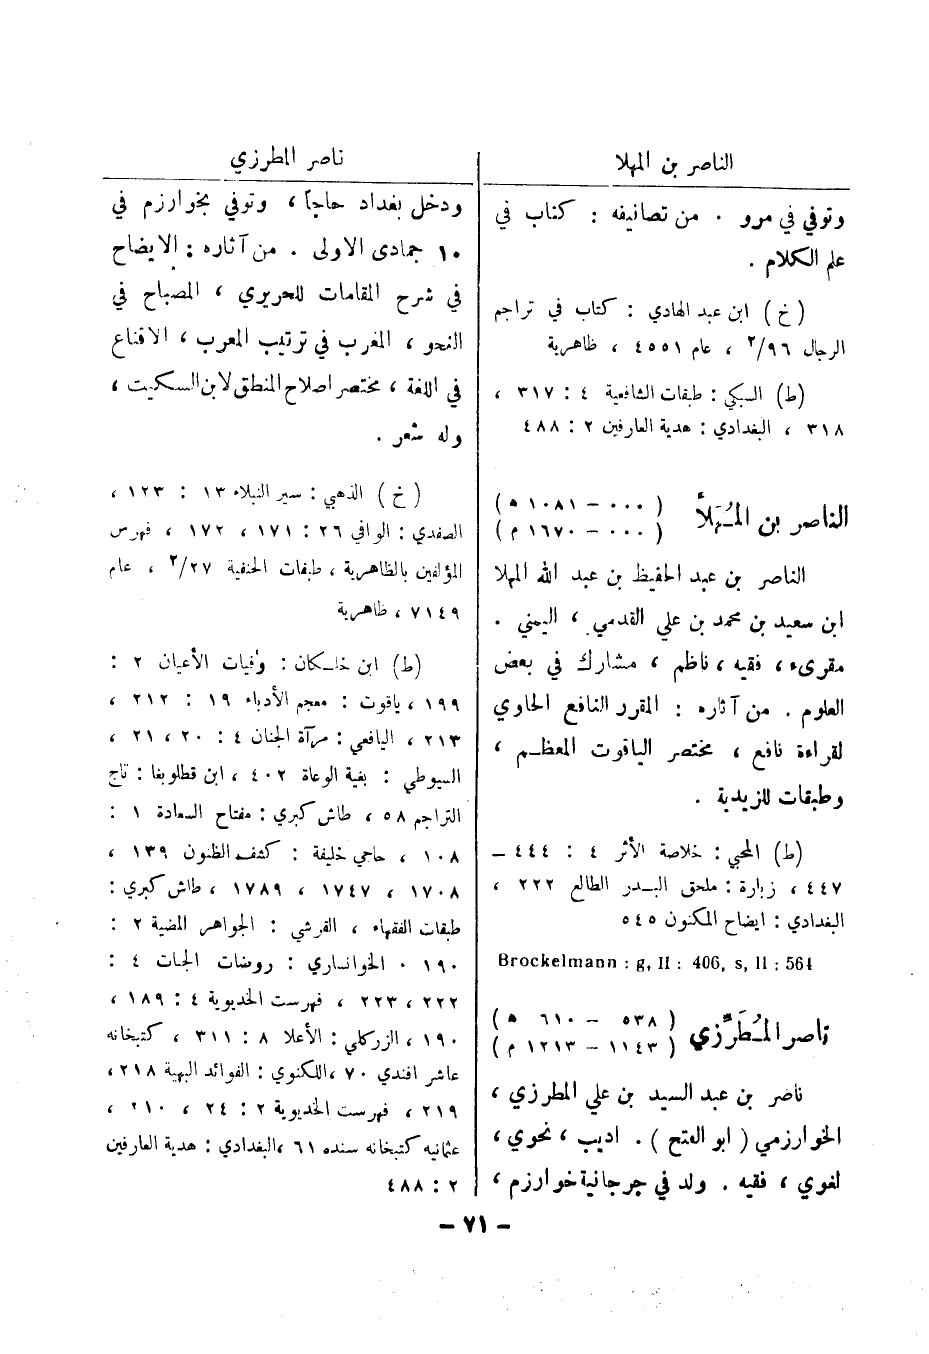 الناصر بن المهلا
وتوفي في مرو . من تصانيفه : كتاب في
علم الكلام .
( خ ) ابن عبد الهادي : كتاب في تراجم
الرجال ٩٦/٢ ، عام ٤٥٥١ ، ظاهرية
(ط) السبكي : طبقات الشافعية ٤ : ٣١٧ ،
٣١٨ ، البغدادي : هدية العارفين ٢ : ٤٨٨
الناصر بن المُهَلّا ( ٠٠٠ – ١٠٨١ ه )
( ٠٠٠ – ١٦٧٠ م )
الناصر بن عبد الحفيظ بن عبد الله المهلا
ابن سعيد بن محمد بن علي القدمي ، اليمني .
مقرىء ، فقيه ، ناظم ، مشارك في بعض
العلوم . من آثاره : المقرر النافع الحاوي
لقراءة نافع ، مختصر الياقوت المعظم ،
وطبقات للزيدية .
(ط) المحبي : خلاصة الأثر ٤ : ٤٤٤ –
٤٤٧ ، زبارة : ملحق البدر الطالع ٢٢٢ ،
البغدادي : ايضاح المكنون ٥٤٥
Brockelmann : g, II : 406, s, II : 564
ناصر المُطَرِّزي ( ٥٣٨ – ٦١٠ ه )
( ١١٤٣ – ١٢١٣ م )
ناصر بن عبد السيد بن علي المطرزي ،
الخوارزمي ( ابو الفتح ) . اديب ، نحوي ،
لغوي ، فقيه . ولد في جرجانية خوارزم ،
ناصر المطرزي
ودخل بغداد حاجاً ، وتوفي بخوارزم في
١٠ جمادى الاولى . من آثاره : الايضاح
في شرح المقامات للحريري ، المصباح في
النحو ، المغرب في ترتيب المعرب ، الاقناع
في اللغة ، مختصر اصلاح المنطق لابن السكيت ،
وله شعر .
( خ ) الذهبي : سير النبلاء ١٣ : ١٢٣ ،
الصفدي : الوافي ٢٦ : ١٧١ ، ١٧٢ ، فهرس
المؤلفين بالظاهرية ، طبقات الحنفية ٢٧/٢ ، عام
٧١٤٩ ، ظاهرية
(ط) ابن خلكان : وفيات الأعيان ٢ :
١٩٩ ، ياقوت : معجم الأدباء ١٩ : ٢١٢ ،
٢١٣ ، اليافعي : مرآة الجنان ٤ : ٢٠ ، ٢١ ،
السيوطي : بغية الوعاة ٤٠٢ ، ابن قطلوبغا : تاج
التراجم ٥٨ ، طاش كبري : مفتاح السعادة ١ :
١٠٨ ، حاجي خليفة : كشف الظنون ١٣٩ ،
١٧٠٨ ، ١٧٤٧ ، ١٧٨٩ ، طاش كبري :
طبقات الفقهاء ، القرشي : الجواهر المضية ٢ :
١٩٠ . الخوانساري : روضات الجنات ٤ :
٢٢٢ ، ٢٢٣ ، فهرست الخديوية ٤ : ١٨٩ ،
١٩٠ ، الزركلي : الأعلام ٨ : ٣١١ ، كتبخانه
عاشر افندي ٧٠ ، اللكنوي : الفوائد البهية ٢١٨ ،
٢١٩ ، فهرست الخديوية ٢ : ٢٤ ، ٢١٠ ،
عثمانيه كتبخانه سنده ٦١ ، البغدادي : هدية العارفين
٢ : ٤٨٨
– ٧١ –